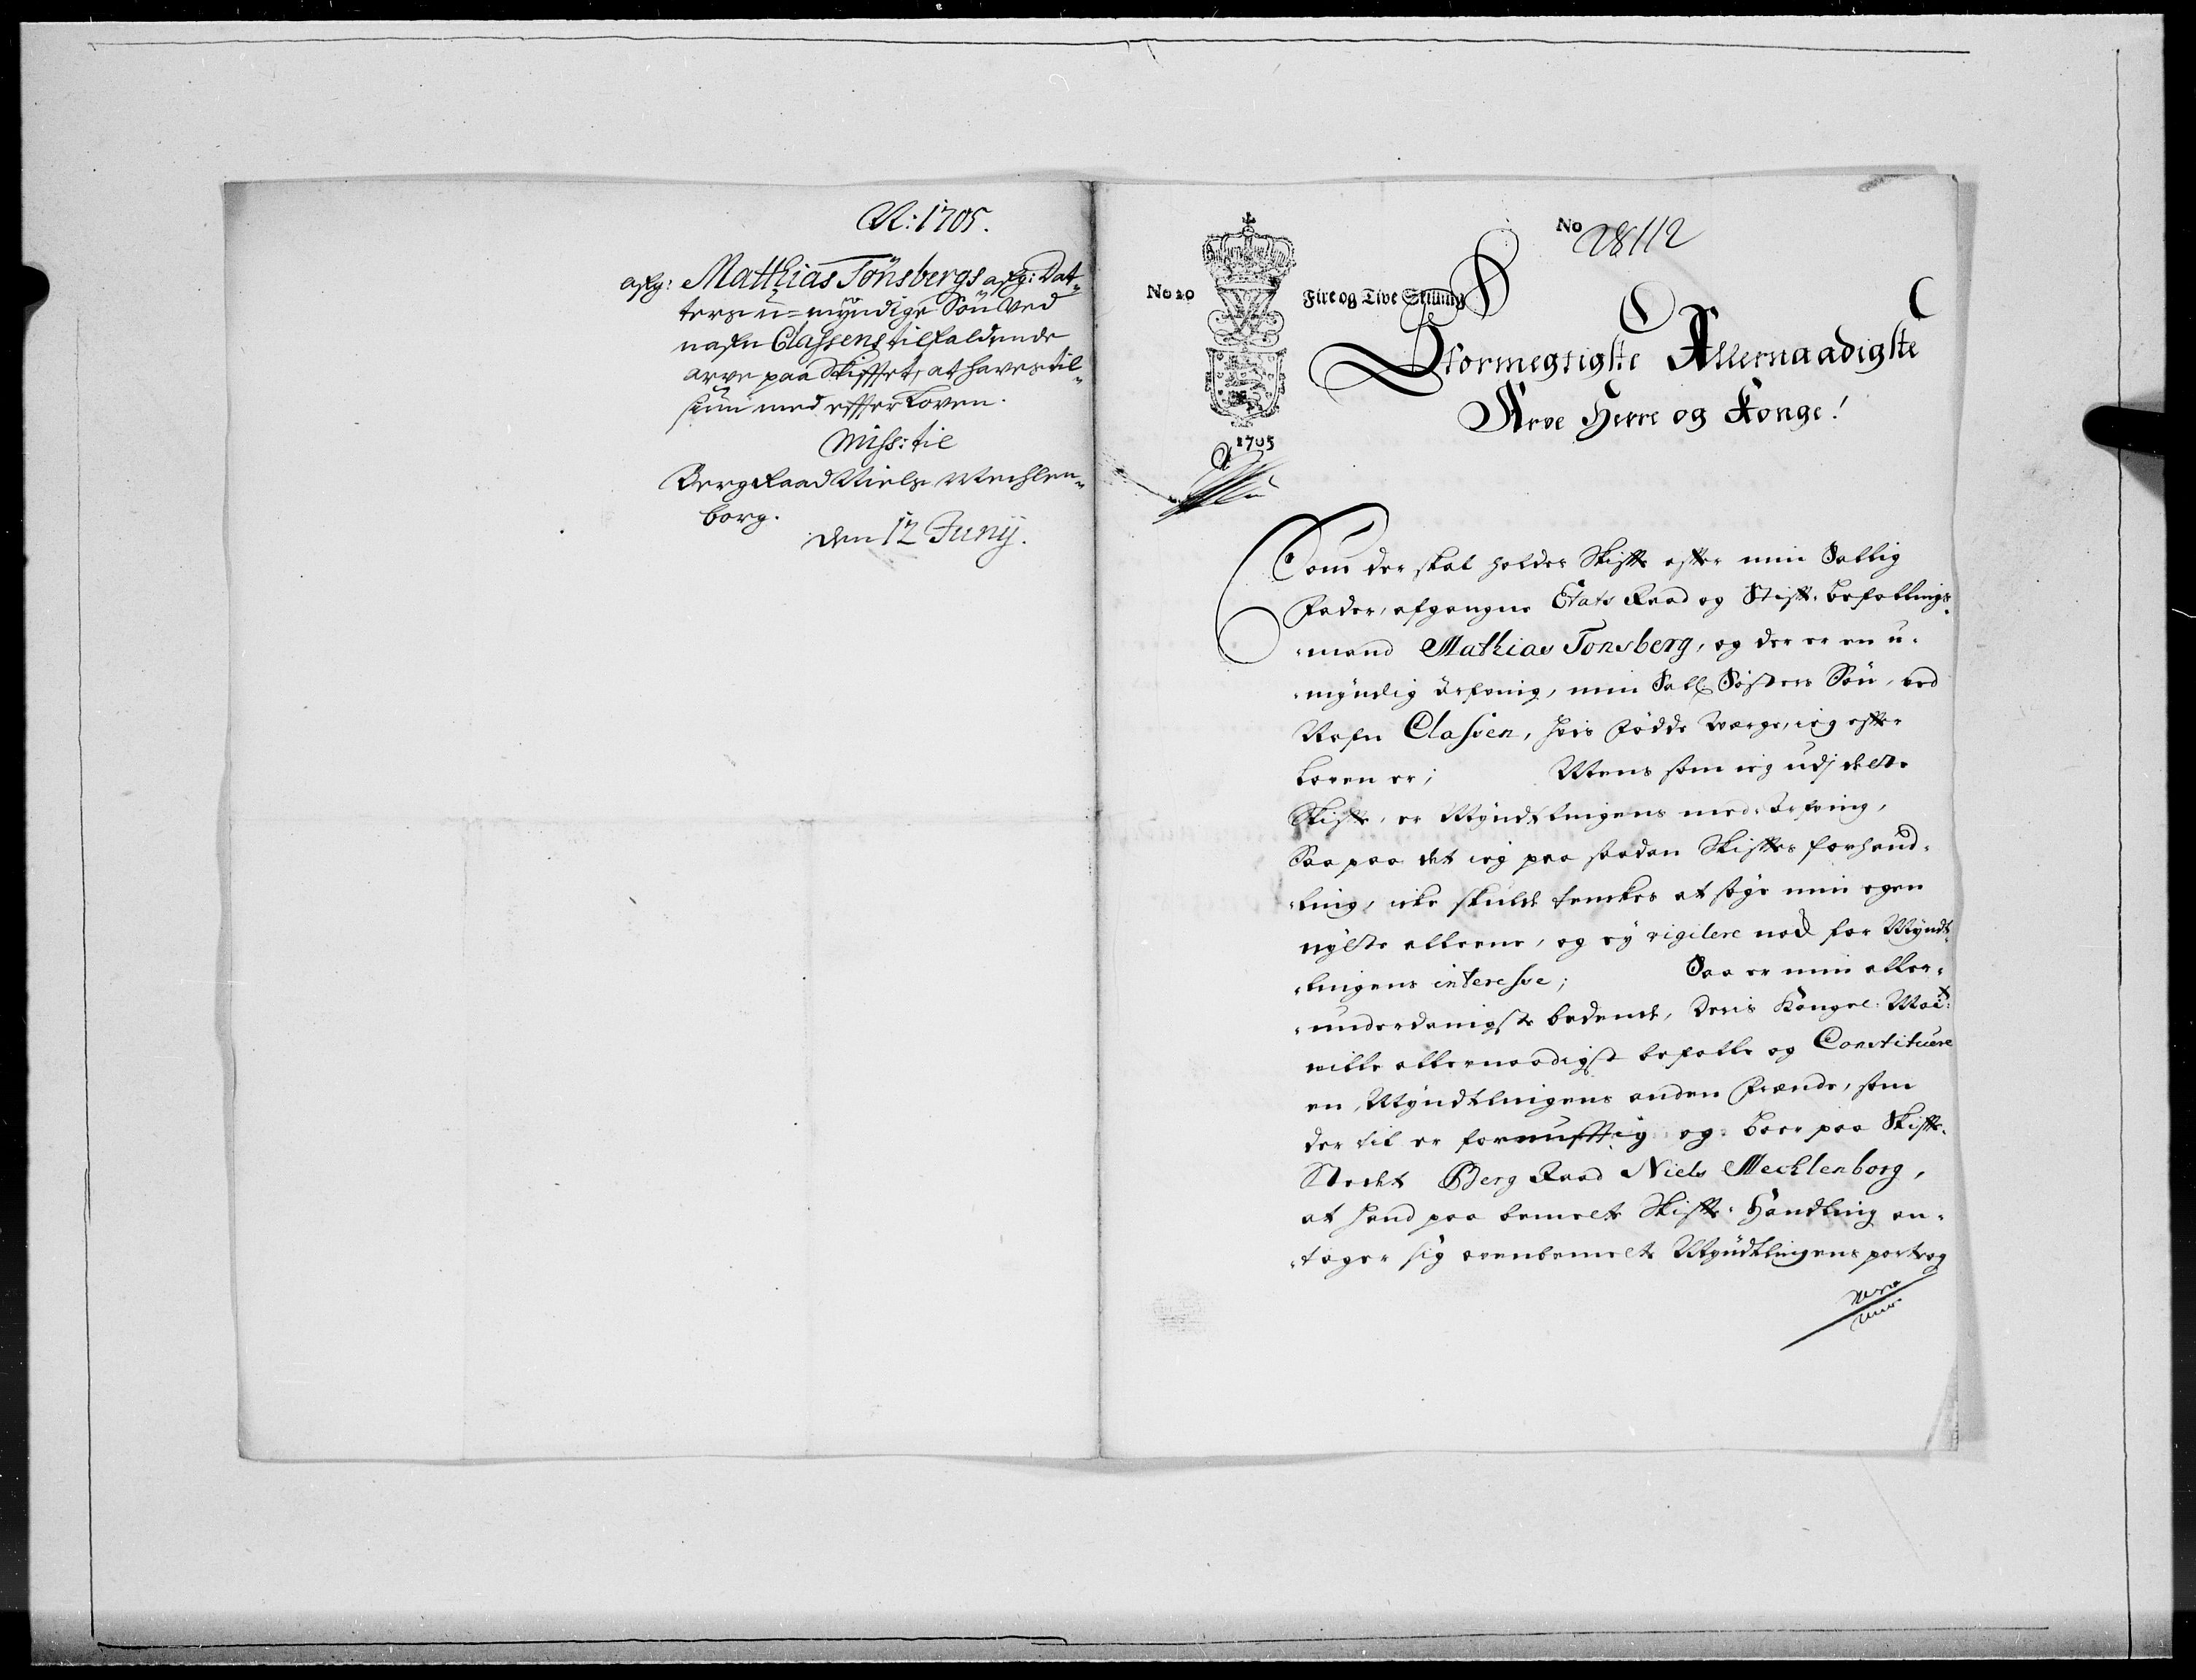 N: 1705.
afg: Matthias Tönsbergs afg: Dat-
ters u-myndige Sön ved
nafn Classens tilfaldende
arve paa Skifftet, at haves til-
siun med effter Loven.
Miss: til
Berg Raad Niels Mechlen-
borg.
den 12 Junij.
No 28112
No 20
Fire og Tive Skilling
1705
Stormegtigste Allernaadigste
Arve Herre og Konge!
Som der skal holdes Skiffte effter min Sallig
Fader, afgangne Etats Raad og Stifft-befallings-
-mand Mathias Tonsberg, og der er en u-
-myndig Arfving, min Sall. Søsters Søn, ved
Nafn Classen, hvis födde Værge, ieg effter
Loven er; Mens som ieg udj dette
Skiffte, er Myndtlingens med-Arfving,
Saa paa det ieg paa saadan Skifftes forhand-
-ling, icke skulde tenckes at søge min egen
nytte alleene, og ey vigilere nod for Myndt-
-lingens interesse; Saa er min aller-
-underdanigste bedende, Deris Kongel: Mait:
ville allernaadigst befalle og Constituere
en Myndtlingens anden Frænde, som
der til er fornufftig og boer paa Skiffte-
Stedet Berg Raad Niels Mechlenborg,
at hand paa bemelte Skiffte-Handling an-
-tager sig ovenbemelte Myndtlingens part og